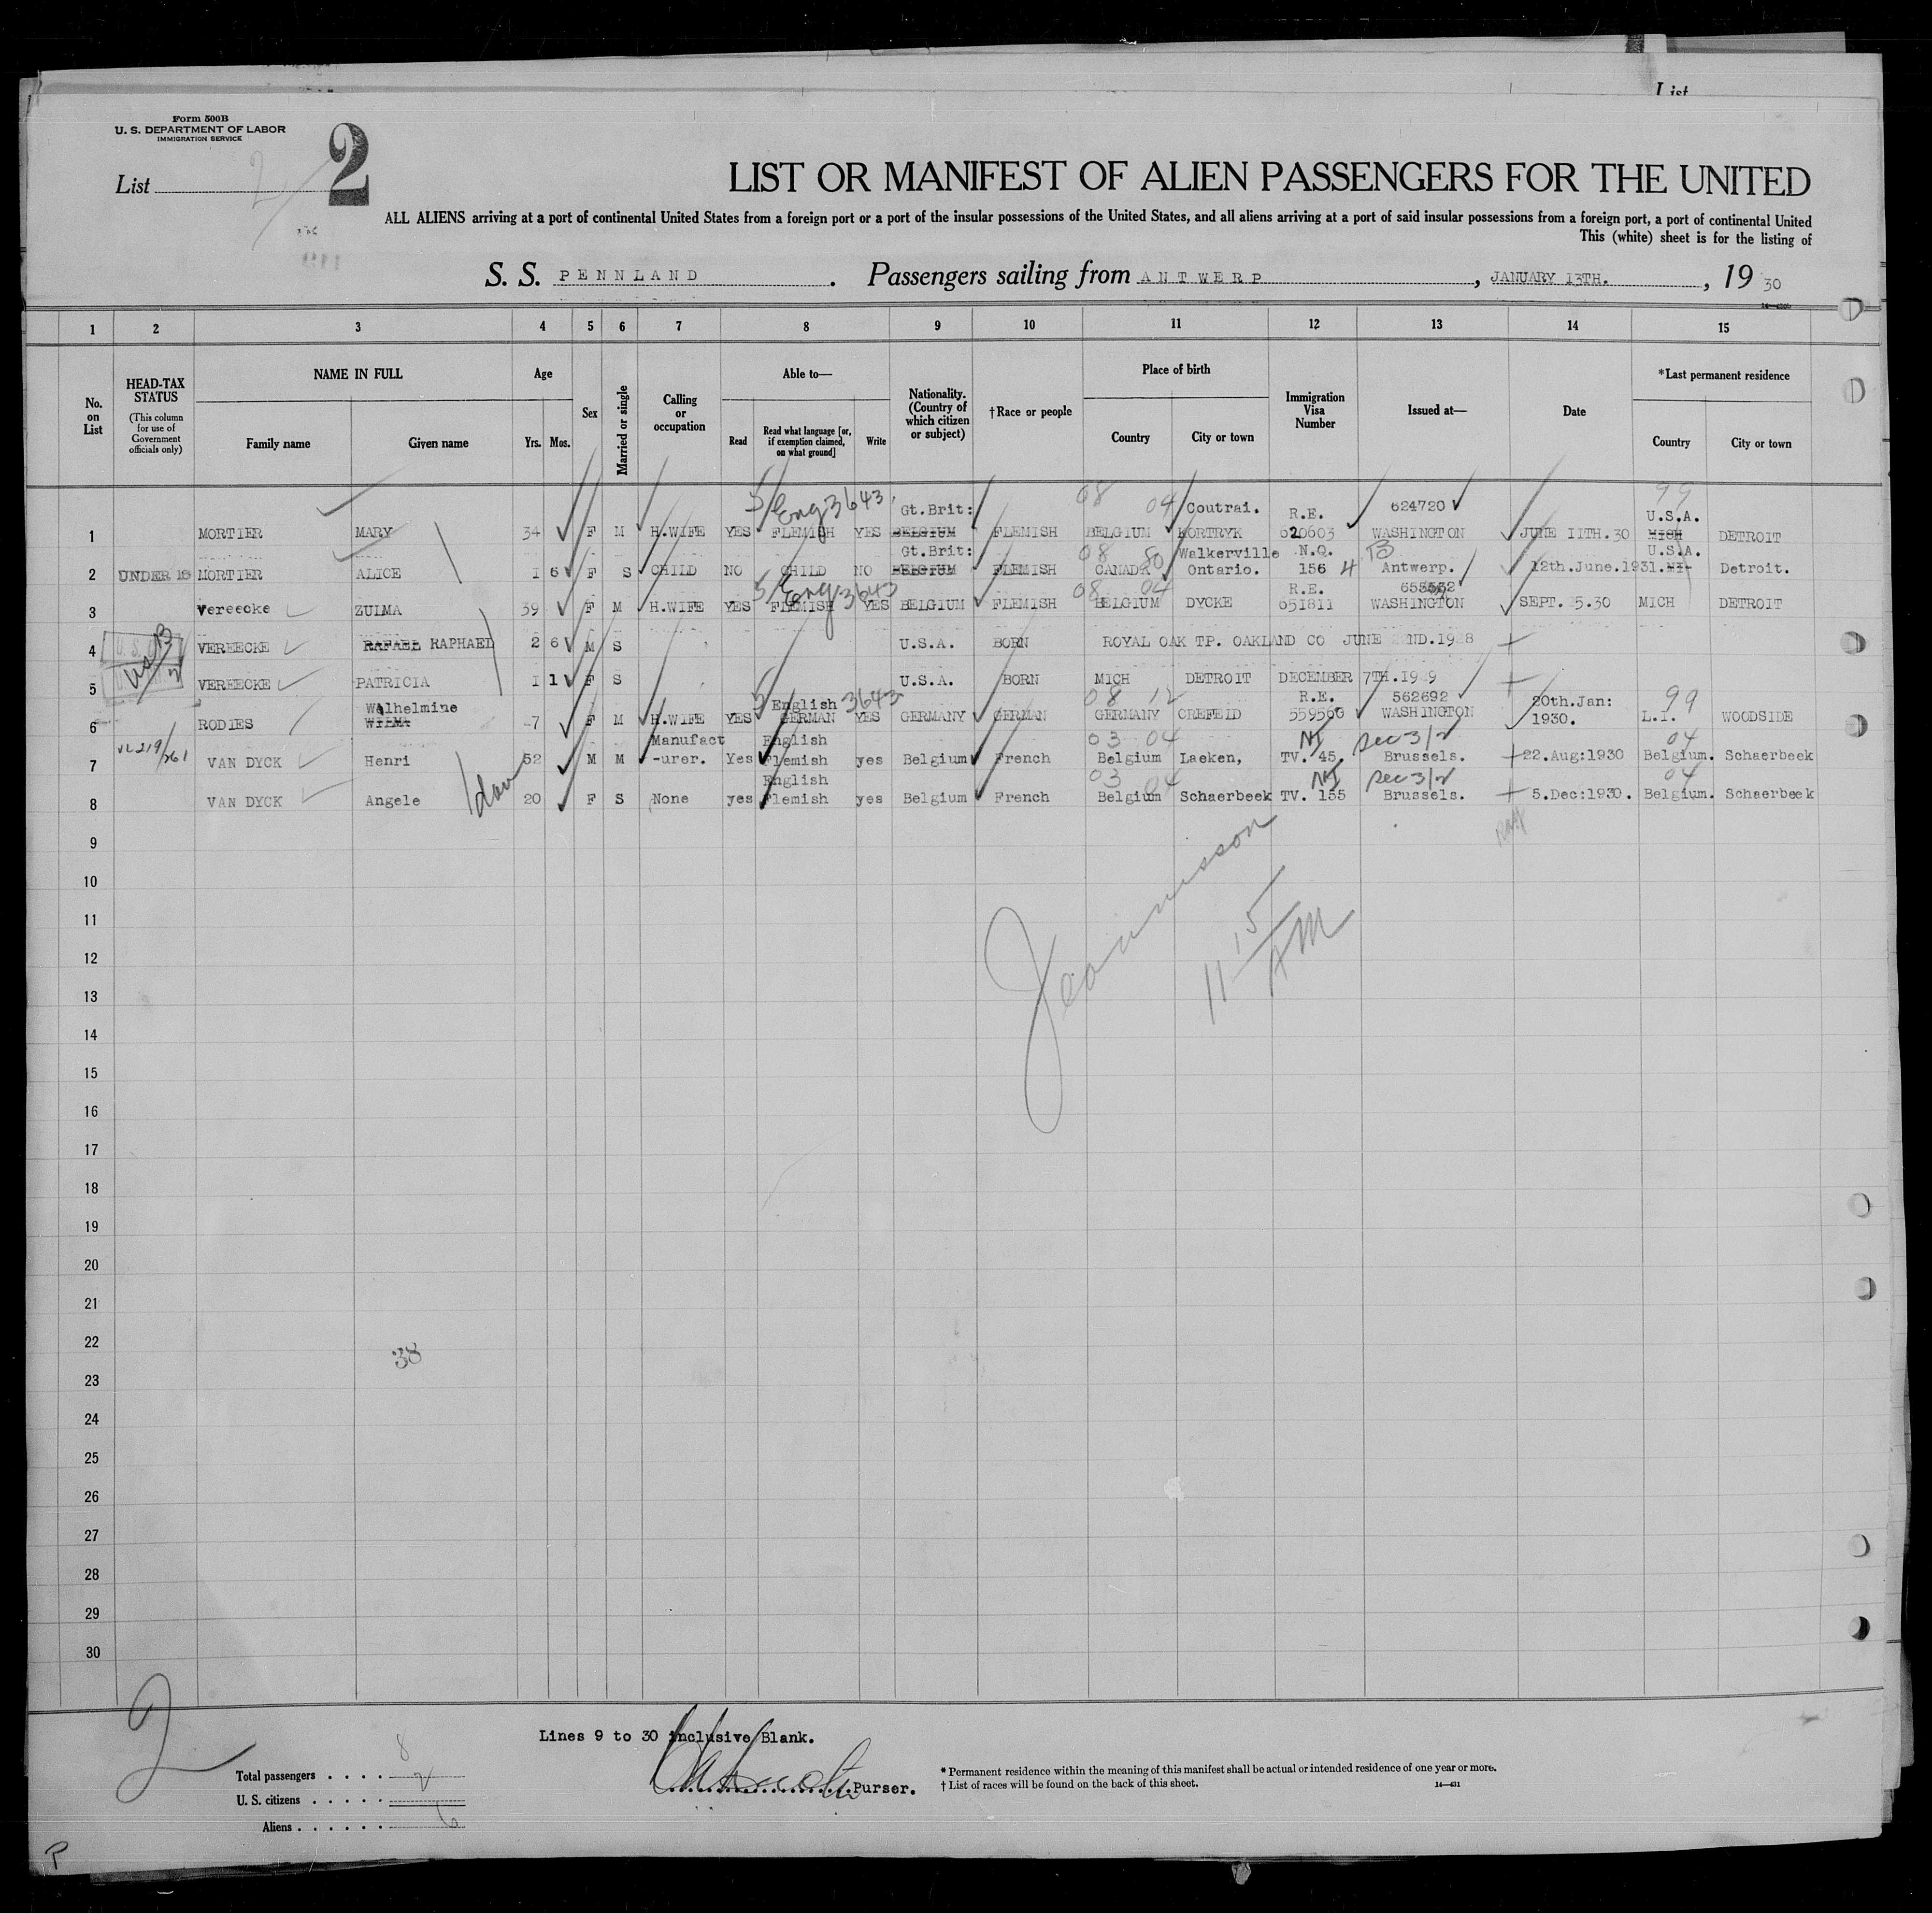 List
Form 500B
U. S. DEPARTMENT OF LABOR
IMMIGRATION SERVICE
List 2
2
LIST OR MANIFEST OF ALIEN PASSENGERS FOR THE UNITED
ALL ALIENS arriving at a port of continental United States from a foreign port or a port of the insular possessions of the United States, and all aliens arriving at a port of said insular possessions from a foreign port, a port of continental United
This (white) sheet is for the listing of
S. S. PENNLAND . Passengers sailing from ANTWERP , JANUARY 13TH. , 19 30
1 2 3 4 5 6 7 8 9 10 11 12 13 14 15
No. on List
HEAD-TAX STATUS (This column for use of Government officials only)
NAME IN FULL
Family name Given name
Age
Yrs. Mos.
Sex
Married or single
Calling or occupation
Able to—
Read Read what language [or, if exemption claimed, on what ground] Write
Nationality. (Country of which citizen or subject)
†Race or people
Place of birth
Country City or town
Immigration Visa Number
Issued at—
Date
*Last permanent residence
Country City or town
5 Eng 3643 Gt.Brit: 08 04 Coutrai. R.E. 624720 99 U.S.A.
1 MORTIER MARY 34 F M H.WIFE YES FLEMISH YES BELGIUM FLEMISH BELGIUM KORTRYK 620603 WASHINGTON JUNE IITH.30 MICH DETROIT
Gt.Brit: 08 80 Walkerville N.Q. B U.S.A.
2 UNDER 16 MORTIER ALICE I 6 F S CHILD NO CHILD NO BELGIUM FLEMISH CANADA Ontario. 156 4 Antwerp. 12th.June.1931. MI- Detroit.
5 Eng 3643 08 04 R.E.
3 Vereecke ZULMA 39 F M H.WIFE YES FLEMISH YES BELGIUM FLEMISH BELGIUM DYCKE 651811 WASHINGTON SEPT. 25.30 MICH DETROIT
4 VEREECKE RAFAEL RAPHAEL 2 6 M S U.S.A. BORN ROYAL OAK TP. OAKLAND CO JUNE 22ND.1928
5 VEREECKE PATRICIA I 1 F S U.S.A. BORN MICH DETROIT DECEMBER 7TH.1929
Wilhelmine 5 English 3643 08 12 R.E. 562692 20th.Jan: 99
6 RODIES WILMA 7 F M H.WIFE YES GERMAN YES GERMANY GERMAN GERMANY CREFELD 559566 WASHINGTON 1930. L.I. WOODSIDE
Manufact English 03 04 NI Sec 3/2 04
7 VAN DYCK Henri 52 M M -urer. Yes Flemish yes Belgium French Belgium Laeken, TV. 45. Brussels. 22.Aug:1930 Belgium. Schaerbeek
English 03 04 NI Sec 3/2 04
8 VAN DYCK Angele 20 F S None yes Flemish yes Belgium French Belgium Schaerbeek TV. 155 Brussels. 5.Dec:1930. Belgium. Schaerbeek
9
10
11
12
13
14
15
16
17
18
19
20
21
22
23
24
25
26
27
28
29
30
11 15 AM
38
2
Lines 9 to 30 inclusive Blank.
Purser.
Total passengers . . . . 8
U. S. citizens . . . . . 2
Aliens . . . . . . 6
* Permanent residence within the meaning of this manifest shall be actual or intended residence of one year or more.
† List of races will be found on the back of this sheet.
14—431
P